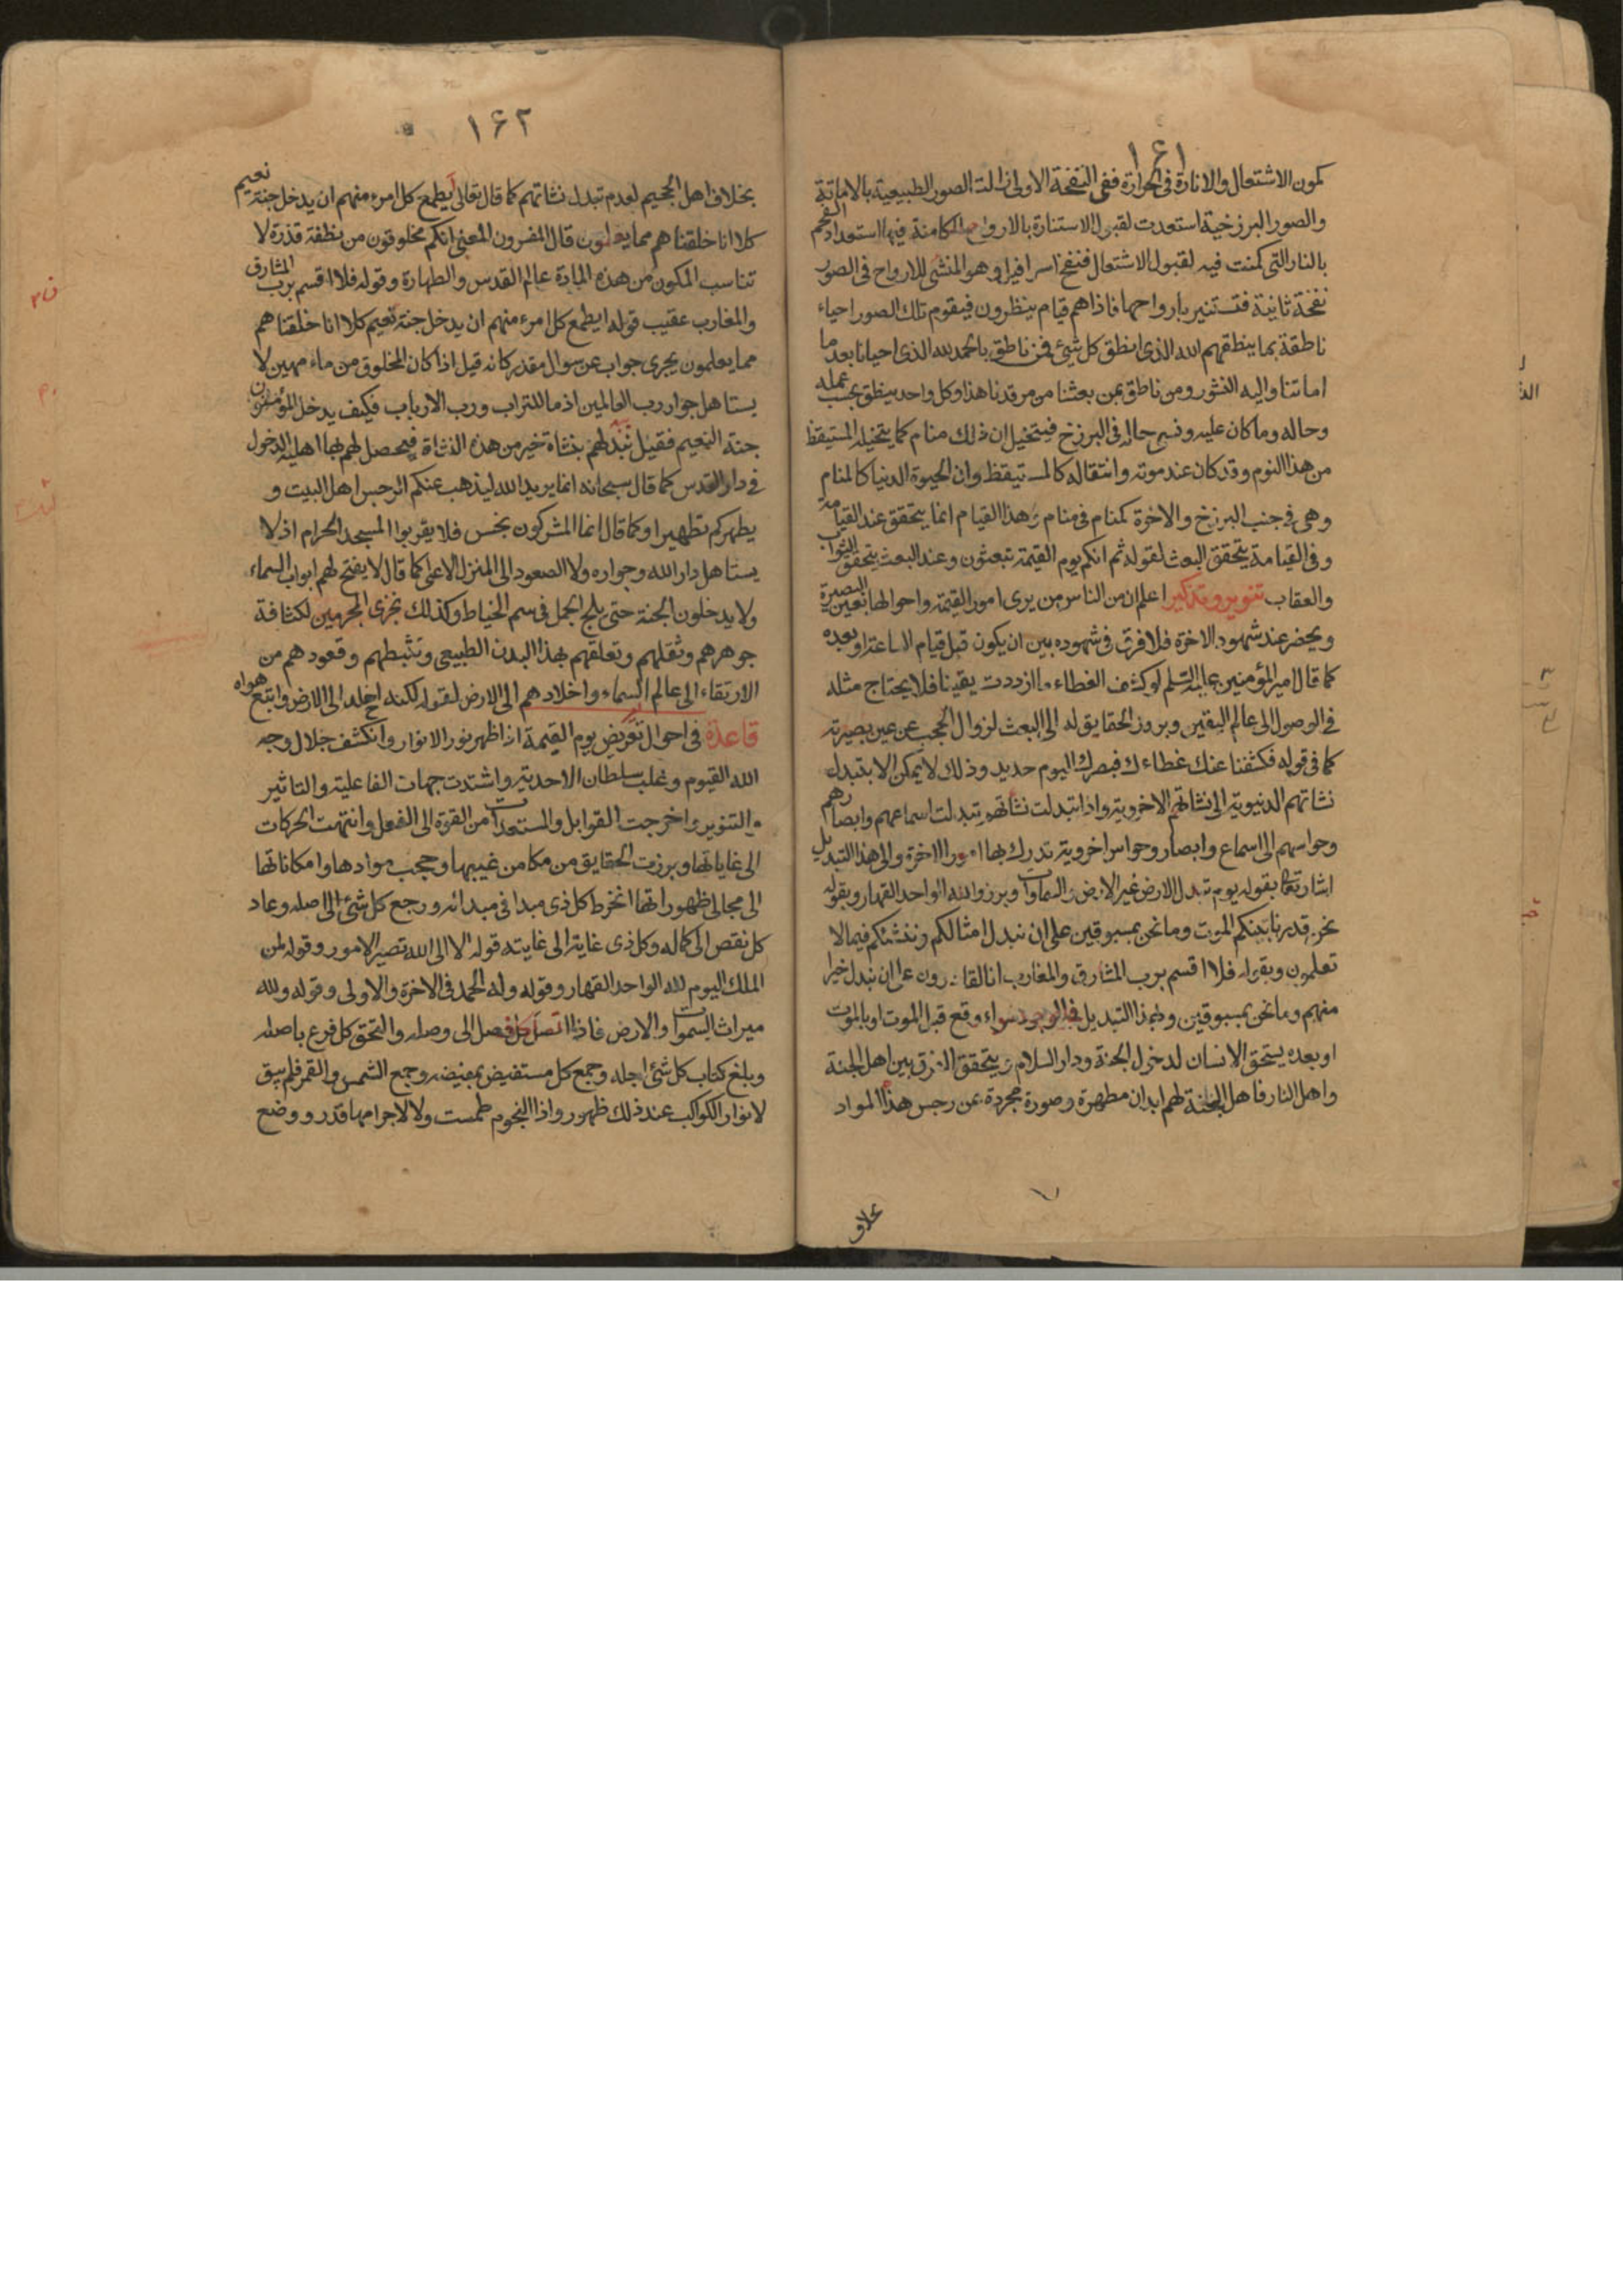 ١۶١
كمون الاشتعال والانارة فى الحرارة ففى النفخة الاولى زالت الصور الطبيعية بالاماتة
والصور البرزخية استعدت لقبول الاستنارة بالارواح الكامنة فيها استعداد الفحم
بالنار التى كمنت فيه لقبول الاشتعال فنفخ اسرافيل وهو المنشى للارواح فى الصور
نفخة ثانية فتستنير بارواحها فاذا هم قيام ينظرون فيقوم تلك الصور احياء
ناطقة بما ينطقهم الله الذى انطق كل شئ فمن ناطق بالحمد لله الذى احيانا بعد ما
اماتنا واليه النشور ومن ناطق بمن بعثنا من مرقدنا هذا وكل واحد ينطق بحسب عمله
وحاله وما كان عليه ونسى حاله فى البرزخ فيتخيل ان ذلك منام كما يتخيله المستيقظ
من هذا النوم وقد كان عند موته وانتقاله كالمستيقظ وان الحيوة الدنيا كالمنام
وهى فى جنب البرزخ والاخرة كمنام فى منام وهذا القيام انما يتحقق عند القيامة
وفى القيامة يتحقق البعث لقوله ثم انكم يوم القيمة تبعثون وعند البعث يتحقق الثواب
والعقاب تنوير وتذكير اعلم ان من الناس من يرى امور القيمة واحوالها بعين البصيرة
ويحضر عند شهود الاخرة فلا فرق فى شهوده بين ان يكون قبل قيام الساعة او بعده
كما قال امير المؤمنين عليه السلم لو كشف الغطاء ما ازددت يقينا فلا يحتاج مثله
فى الوصول الى عالم اليقين وبروز الحقايق له الى البعث لزوال الحجب عن عين بصيرته
كما فى قوله فكشفنا عنك غطاءك فبصرك اليوم حديد وذلك لا يمكن الا بتبدل
نشاتهم الدنيوية الى نشاتهم الاخروية واذا تبدلت نشاتهم تبدلت اسماعهم وابصارهم
وحواسهم الى اسماع وابصار وحواس اخروية تدرك بها امور الاخرة والى هذا التبديل
اشار تعالى بقوله يوم تبدل الارض غير الارض والسماوات وبرزوا لله الواحد القهار وبقوله
نحن قدرنا بينكم الموت وما نحن بمسبوقين على ان نبدل امثالكم وننشئكم فيما لا
تعلمون وبقوله فلا اقسم برب المشارق والمغارب انا لقادرون على ان نبدل خيرا
منهم وما نحن بمسبوقين وبهذا التبديل فى الوجود سواء وقع قبل الموت او بالموت
او بعده يستحق الانسان لدخول الجنة ودار السلام و يتحقق الفرق بين اهل الجنة
واهل النار فاهل الجنة لهم ابدان مطهرة وصورة مجردة عن رجس هذا المواد
بخلاف
١۶٢
بخلاف اهل الجحيم لعدم تبدل نشاتهم كما قال تعالى ايطمع كل امرء منهم ان يدخل جنة نعيم
كلا انا خلقناهم مما يعلمون قال المفسرون المعنى انكم مخلوقون من نطفة قذرة لا
تناسب المكون من هذه المادة عالم القدس والطهارة وقوله فلا اقسم برب المشارق
والمغارب عقيب قوله ايطمع كل امرء منهم ان يدخل جنة نعيم كلا انا خلقناهم
مما يعلمون يجرى جواب عن سوال مقدر كانه قيل اذا كان المخلوق من ماء مهين لا
يستاهل جوار رب العالمين اذ ما للتراب ورب الارباب فكيف يدخل المؤمنون
جنة النعيم فقيل نبدلهم بنشاة خير من هذه النشاة فيحصل لهم بها اهلية الدخول
فى دار القدس كما قال سبحانه انما يريد الله ليذهب عنكم الرجس اهل البيت و
يطهركم تطهيرا وكما قال انما المشركون نجس فلا يقربوا المسجد الحرام اذ لا
يستاهل دار الله وجواره ولا الصعود الى المنزل الاعلى كما قال لا يفتح لهم ابواب السماء
ولا يدخلون الجنة حتى يلج الجمل فى سم الخياط وكذلك نجزى المجرمين لكثافة
جوهرهم وثقلهم وتعلقهم بهذا البدن الطبيعى وتثبطهم وقعودهم من
الارتقاء الى عالم السماء واخلادهم الى الارض لقوله لكنه اخلد الى الارض واتبع هواه
قاعدة فى احوال تعرض يوم القيمة اذا ظهر نور الانوار وانكشف جلال وجه
الله القيوم وغلب سلطان الاحدية واشتدت جهات الفاعلية والتاثير
والتنوير واخرجت القوابل والمستعدات من القوة الى الفعل وانتهت الحركات
الى غاياتها وبرزت الحقايق من مكامن غيبها وحجب موادها وامكاناتها
الى مجالى ظهوراتها انخرط كل ذى مبدا فى مبدائه ورجع كل شئ الى اصله وعاد
كل نقص الى كماله وكل ذى غاية الى غايته قوله الا الى الله تصير الامور وقوله لمن
الملك اليوم لله الواحد القهار وقوله وله الحمد فى الاخرة والاولى وقوله ولله
ميراث السموات والارض فاذا اتصل كل فصل الى وصله والتحق كل فرع باصله
وبلغ كتاب كل شئ اجله وجمع كل مستفيض بمفيضه وجمع الشمس والقمر فلم يبق
لانوار الكواكب عند ذلك ظهور واذا النجوم طمست ولا لاجرامها قدر ووضع